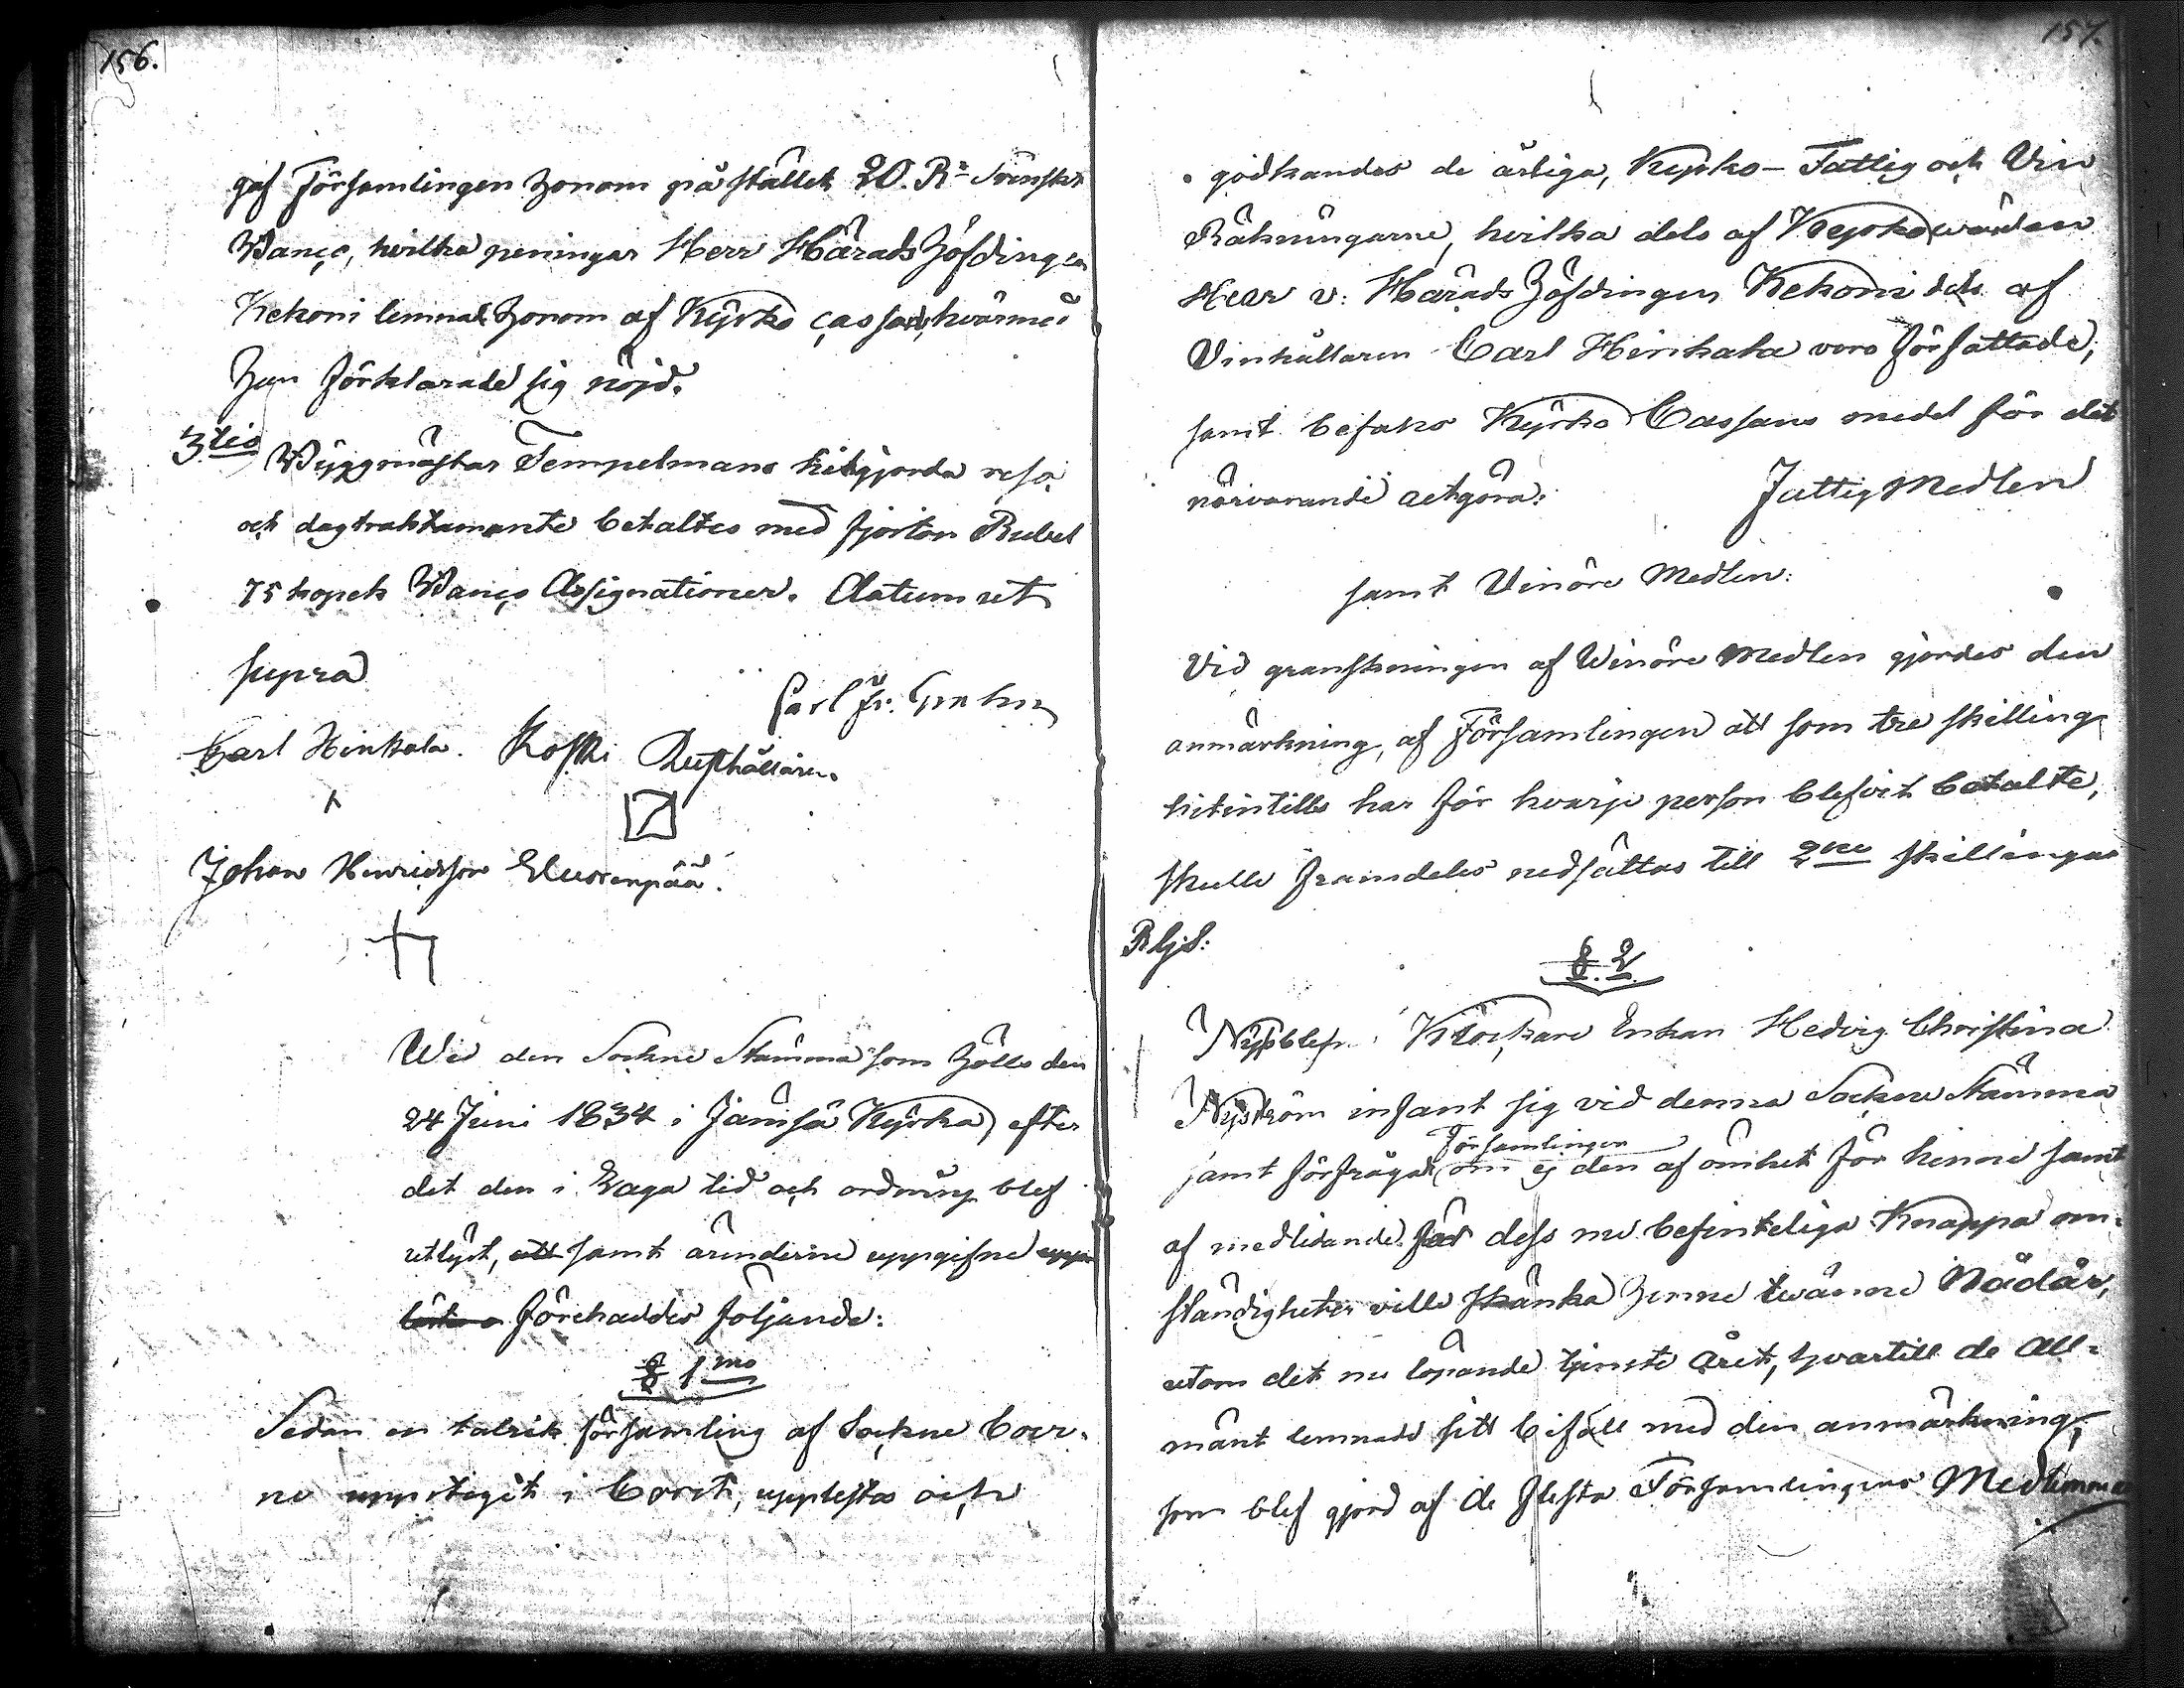 156.
gaf Församlingen honom på stället 20. R: Svenskt
Banco, hvilka peningar Herr HäradsHöfdingen
Kekoni lemnat honom af Kyrko cassan, hvarmed
han förklarade sig nöjd.
3.tio Byggmästar Tempelmans hitgjorda resa
och dagtraktamente betaltes med fjorton Rubel
75 kopek Banco Assignationer. Datum ut
supra
Carl Fr. Grahn
Carl Hinkala. Koski Rusthållaren.
Johan Henricsson
Wid den Sockne Stämma som hölls den
24 Juni 1834 i Jämsä Kyrka, efter
det den i Laga tid och ordning blef
utlyst, att samt ärenderne uppgifne upp
förehaddes följande:
§ 1mo
Sedan en talrik församling af Sockne Boer-
ne upptagit i Coret, upplästes och
157.
godkändes de årliga, Kyrko- Fattig och Vin
Räkningarne, hvilka dels af Kyrkowärden
Herr v: HäradsHöfdingen Kekoni dels af
Vinkällaren Carl Hinkala voro författade,
samt befans Kyrko Cassans medel för det
närvarande utgöra: Fattig Medlen
samt Vinöre Medlen:
Vid granskningen af Vinöre Medlen gjordes den
anmärkning, af Församlingen att som tre skilling
hitintills har för hvarje person blefvit betalte,
skulle framdeles nedsättas till 2ne skillingar
Rgs:
§. 2
Klockare Enkan Hedvig Christina
Nyström infant sig vid denna Sockne Stämma
Församlingen
samt förfrågade om ej den af ömhet för henne samt
af medlidande för dess nu befinteliga Knappa om-
ständigheter ville skänka henne twänne Nådår,
utom det nu löpande tjenste Året, hvartill de All-
mänt lemnade sitt bifall med den anmärkning,
som blef gjord af de flesta Församlingens Medlemmar